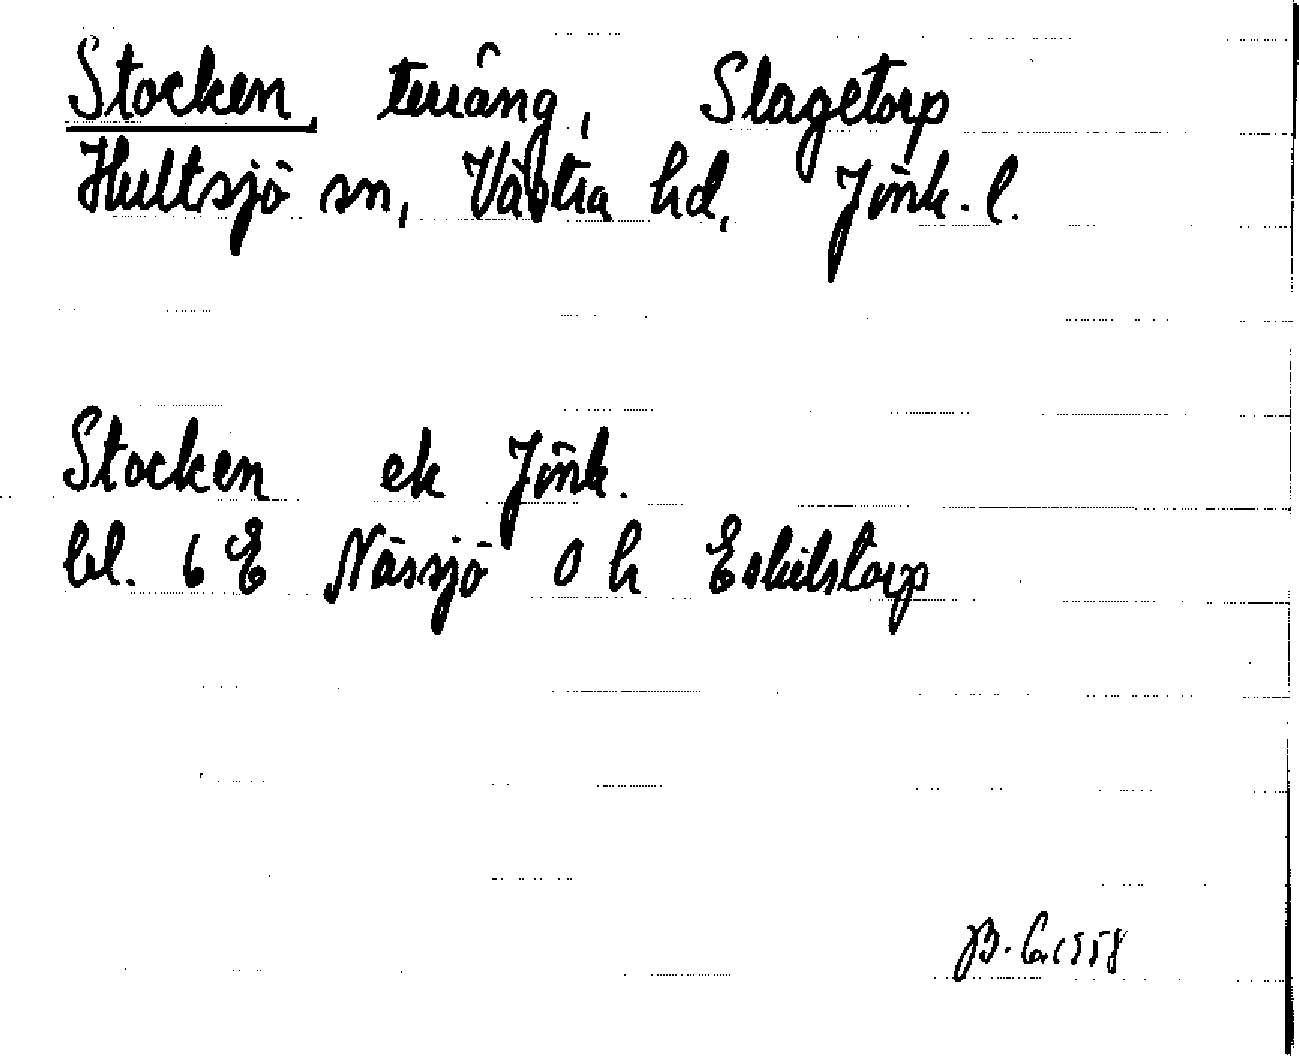 Stocken, terräng, Slagetorp
Hultsjö sn, Västra hd, Jönk. l.
Stocken ek Jönk.
bl. 6 E Nässjö 0 h Eskilstorp
1958